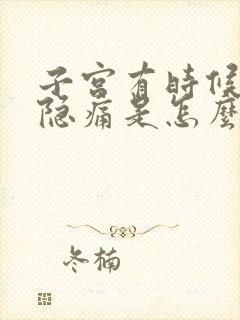 子宫有時候
隐痛是怎麼
冬楠